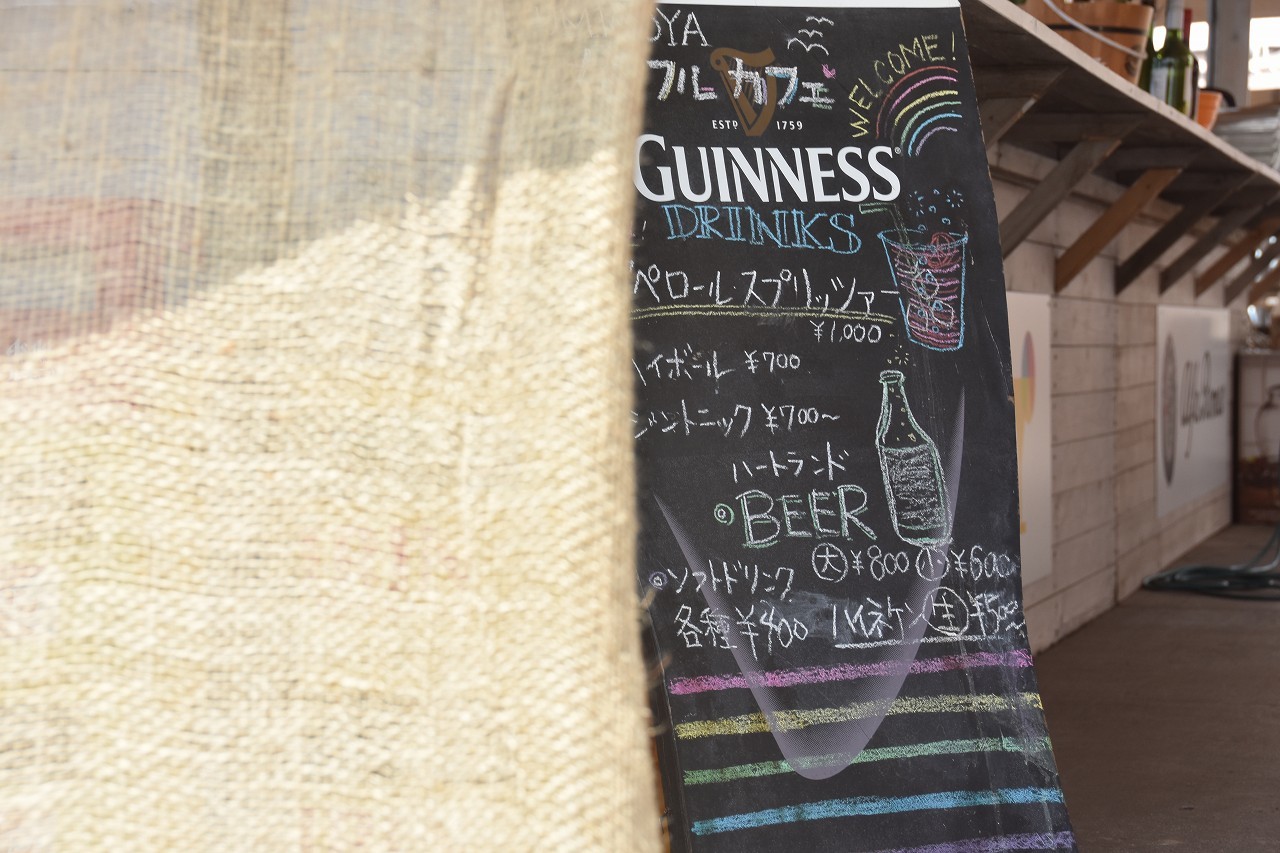 OYA
WELCOME!
フルカフェ
ESTD 1759
GUINNESS
DRINKS
ペロールスプリッツァー
¥1,000
ハイボール ¥700
ジントニック ¥700~
ハートランド
◎BEER
大¥800 小¥600
◎ソフトドリンク
各種¥400
ハイネケン生¥500~